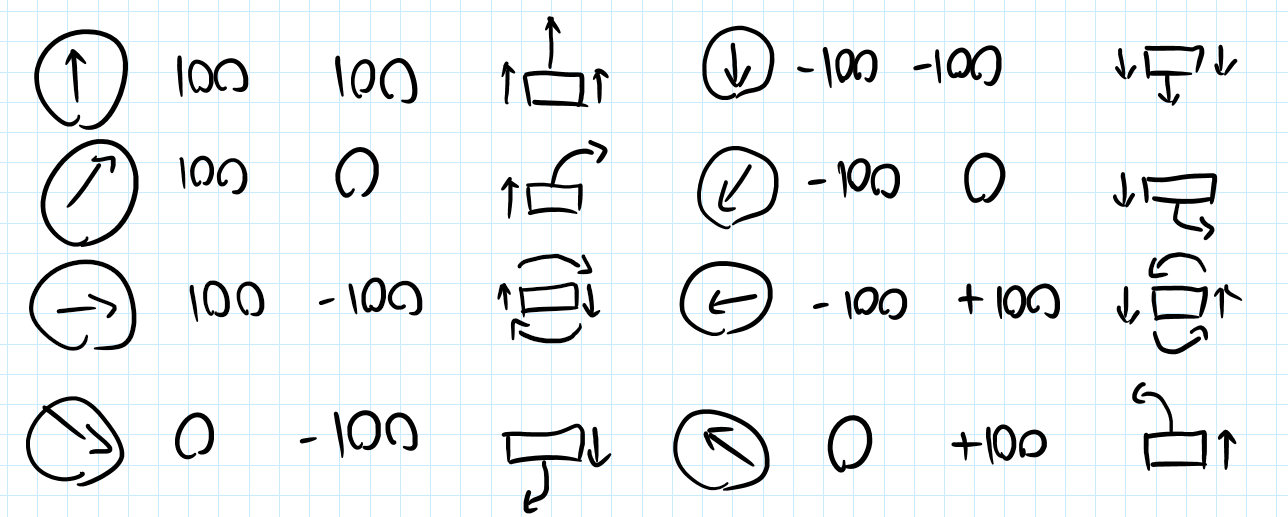 100 100 -100 -100
100 0 -100 0
100 -100 -100 +100
0 -100 0 +100